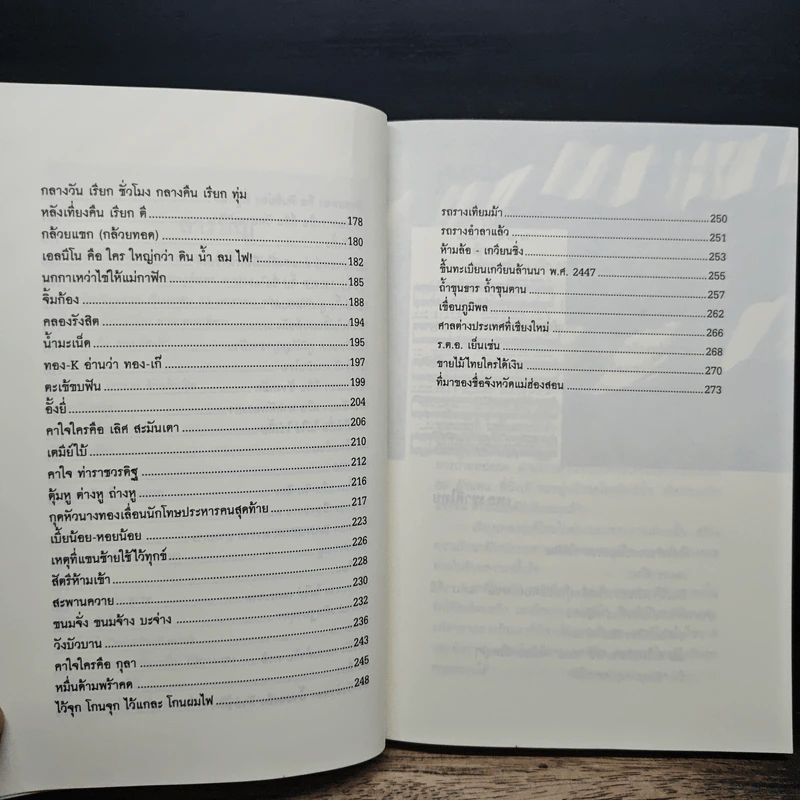 กลางวัน เรียก ชั่วโมง กลางคืน เรียก ทุ่ม
หลังเที่ยงคืน เรียก ตี 178
กล้วยแขก (กล้วยทอด) 180
เอลนีโน คือ ใคร ใหญ่กว่า ดิน น้ำ ลม ไฟ! 182
นกกาเหว่าไข่ให้แม่กาฟัก 185
จิ้มก้อง 188
คลองรังสิต 194
น้ำมะเน็ด 195
ทอง-K อ่านว่า ทอง-เก๊ 197
ตะเข้ขบฟัน 199
อั้งยี่ 204
คาใจใครคือ เลิศ สะมันเตา 206
เตมีย์ใบ้ 210
คาใจ ท่าราชวรดิฐ 212
ตุ้มหู ต่างหู ถ่างหู 216
กุดหัวนางทองเลื่อนนักโทษประหารคนสุดท้าย 217
เบี้ยน้อย-หอยน้อย 223
เหตุที่แขนซ้ายใช้ไว้ทุกข์ 226
สัตรีห้ามเข้า 228
สะพานควาย 230
ขนมจั่ง ขนมจ้าง บะจ่าง 232
วังบัวบาน 236
คาใจใครคือ กุลา 243
หมื่นด้ามพร้าคต 245
ไว้จุก โกนจุก ไว้แกละ โกนผมไฟ 248
รถรางเทียมม้า 250
รถรางอำลาแล้ว 251
ห้ามล้อ - เกวียนซิ่ง 253
ขึ้นทะเบียนเกวียนล้านนา พ.ศ. 2447 255
ถ้ำขุนธาร ถ้ำขุนตาน 257
เขื่อนภูมิพล 262
ศาลต่างประเทศที่เชียงใหม่ 266
ร.ต.อ. เย็นเซ่น 268
ขายไม้ไทยใครได้เงิน 270
ที่มาของชื่อจังหวัดแม่ฮ่องสอน 273